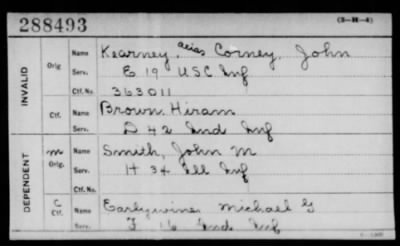 288493
(3-H-4)
INVALID
Orig
Name Kearney, alias Corney, John
Serv. E 19 U.S.C Inf
Ctf. No. 363011
Ctf.
Name Brown Hiram
Serv. D 42 Ind Inf
DEPENDENT
m Orig.
Name Smith, John M
Serv. H 34 Ill Inf
Ctf. No.
C Ctf.
Name Earlywine, Michael G
Serv. F 16 Ind Inf